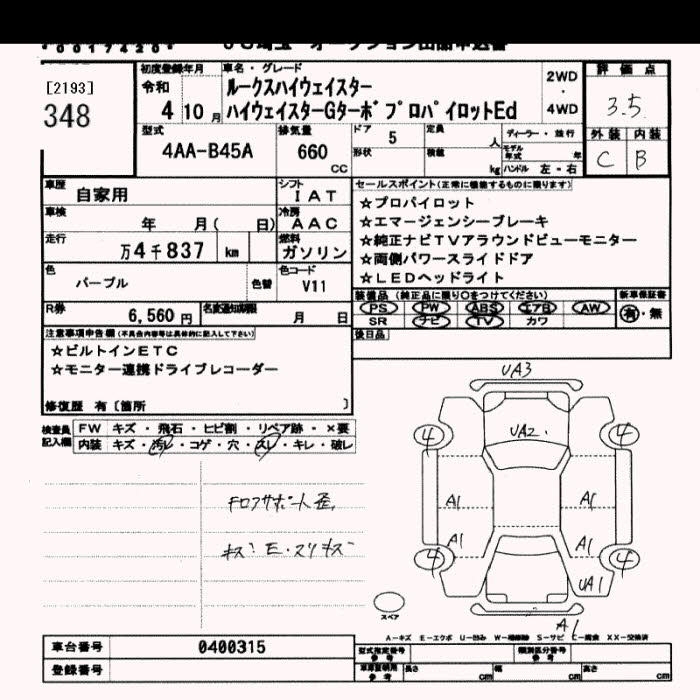 [2193]
348
初度登録年月
令和
4 10 月
車名・グレード
ルークスハイウェイスター
ハイウェイスターGターボプロパイロットEd
2WD
・
4WD
評価点
3.5
外装 内装
C B
型式
4AA-B45A
排気量
660
CC
ドア 5
定員
人
形状
積載
kg
ディーラー・並行
モデル年式
年
ハンドル 左・右
車歴
自家用
シフト
IAT
車検
年 月( 日)
冷房
AAC
走行
万4千837 km
燃料
ガソリン
色
パープル
色替
色コード
V11
R券
6,560 円
名変通知期限
月 日
セールスポイント(正常に機能するものに限ります)
☆プロパイロット
☆エマージェンシーブレーキ
☆純正ナビTVアラウンドビューモニター
☆両側パワースライドドア
☆LEDヘッドライト
装備品(純正品に限り○をつけてください)
PS PW ABS エアB AW
SR ナビ TV カワ
新車保証書
有・無
後日品
注意事項申告欄(不具合内容等は具体的に記入して下さい)
☆ビルトインETC
☆モニター連携ドライブレコーダー
修復歴 有〔箇所 〕
検査員記入欄
FW キズ・飛石・ヒビ割・リペア跡・×要
内装 キズ・汚レ・コゲ・穴・スレ・キレ・破レ
FロアサポートE歪
キズ E・スリキズ
UA3
4 UA2. 4
A1 A1
A1 A1
4 4
UA1
A1
スペア
A-キズ E-エクボ U-凹ミ W-補修跡 S-サビ C-腐食 XX-交換済
車台番号
0400315
登録番号
型式指定番号
参考
類別区分番号
参考
長さ cm
幅 cm
高さ cm